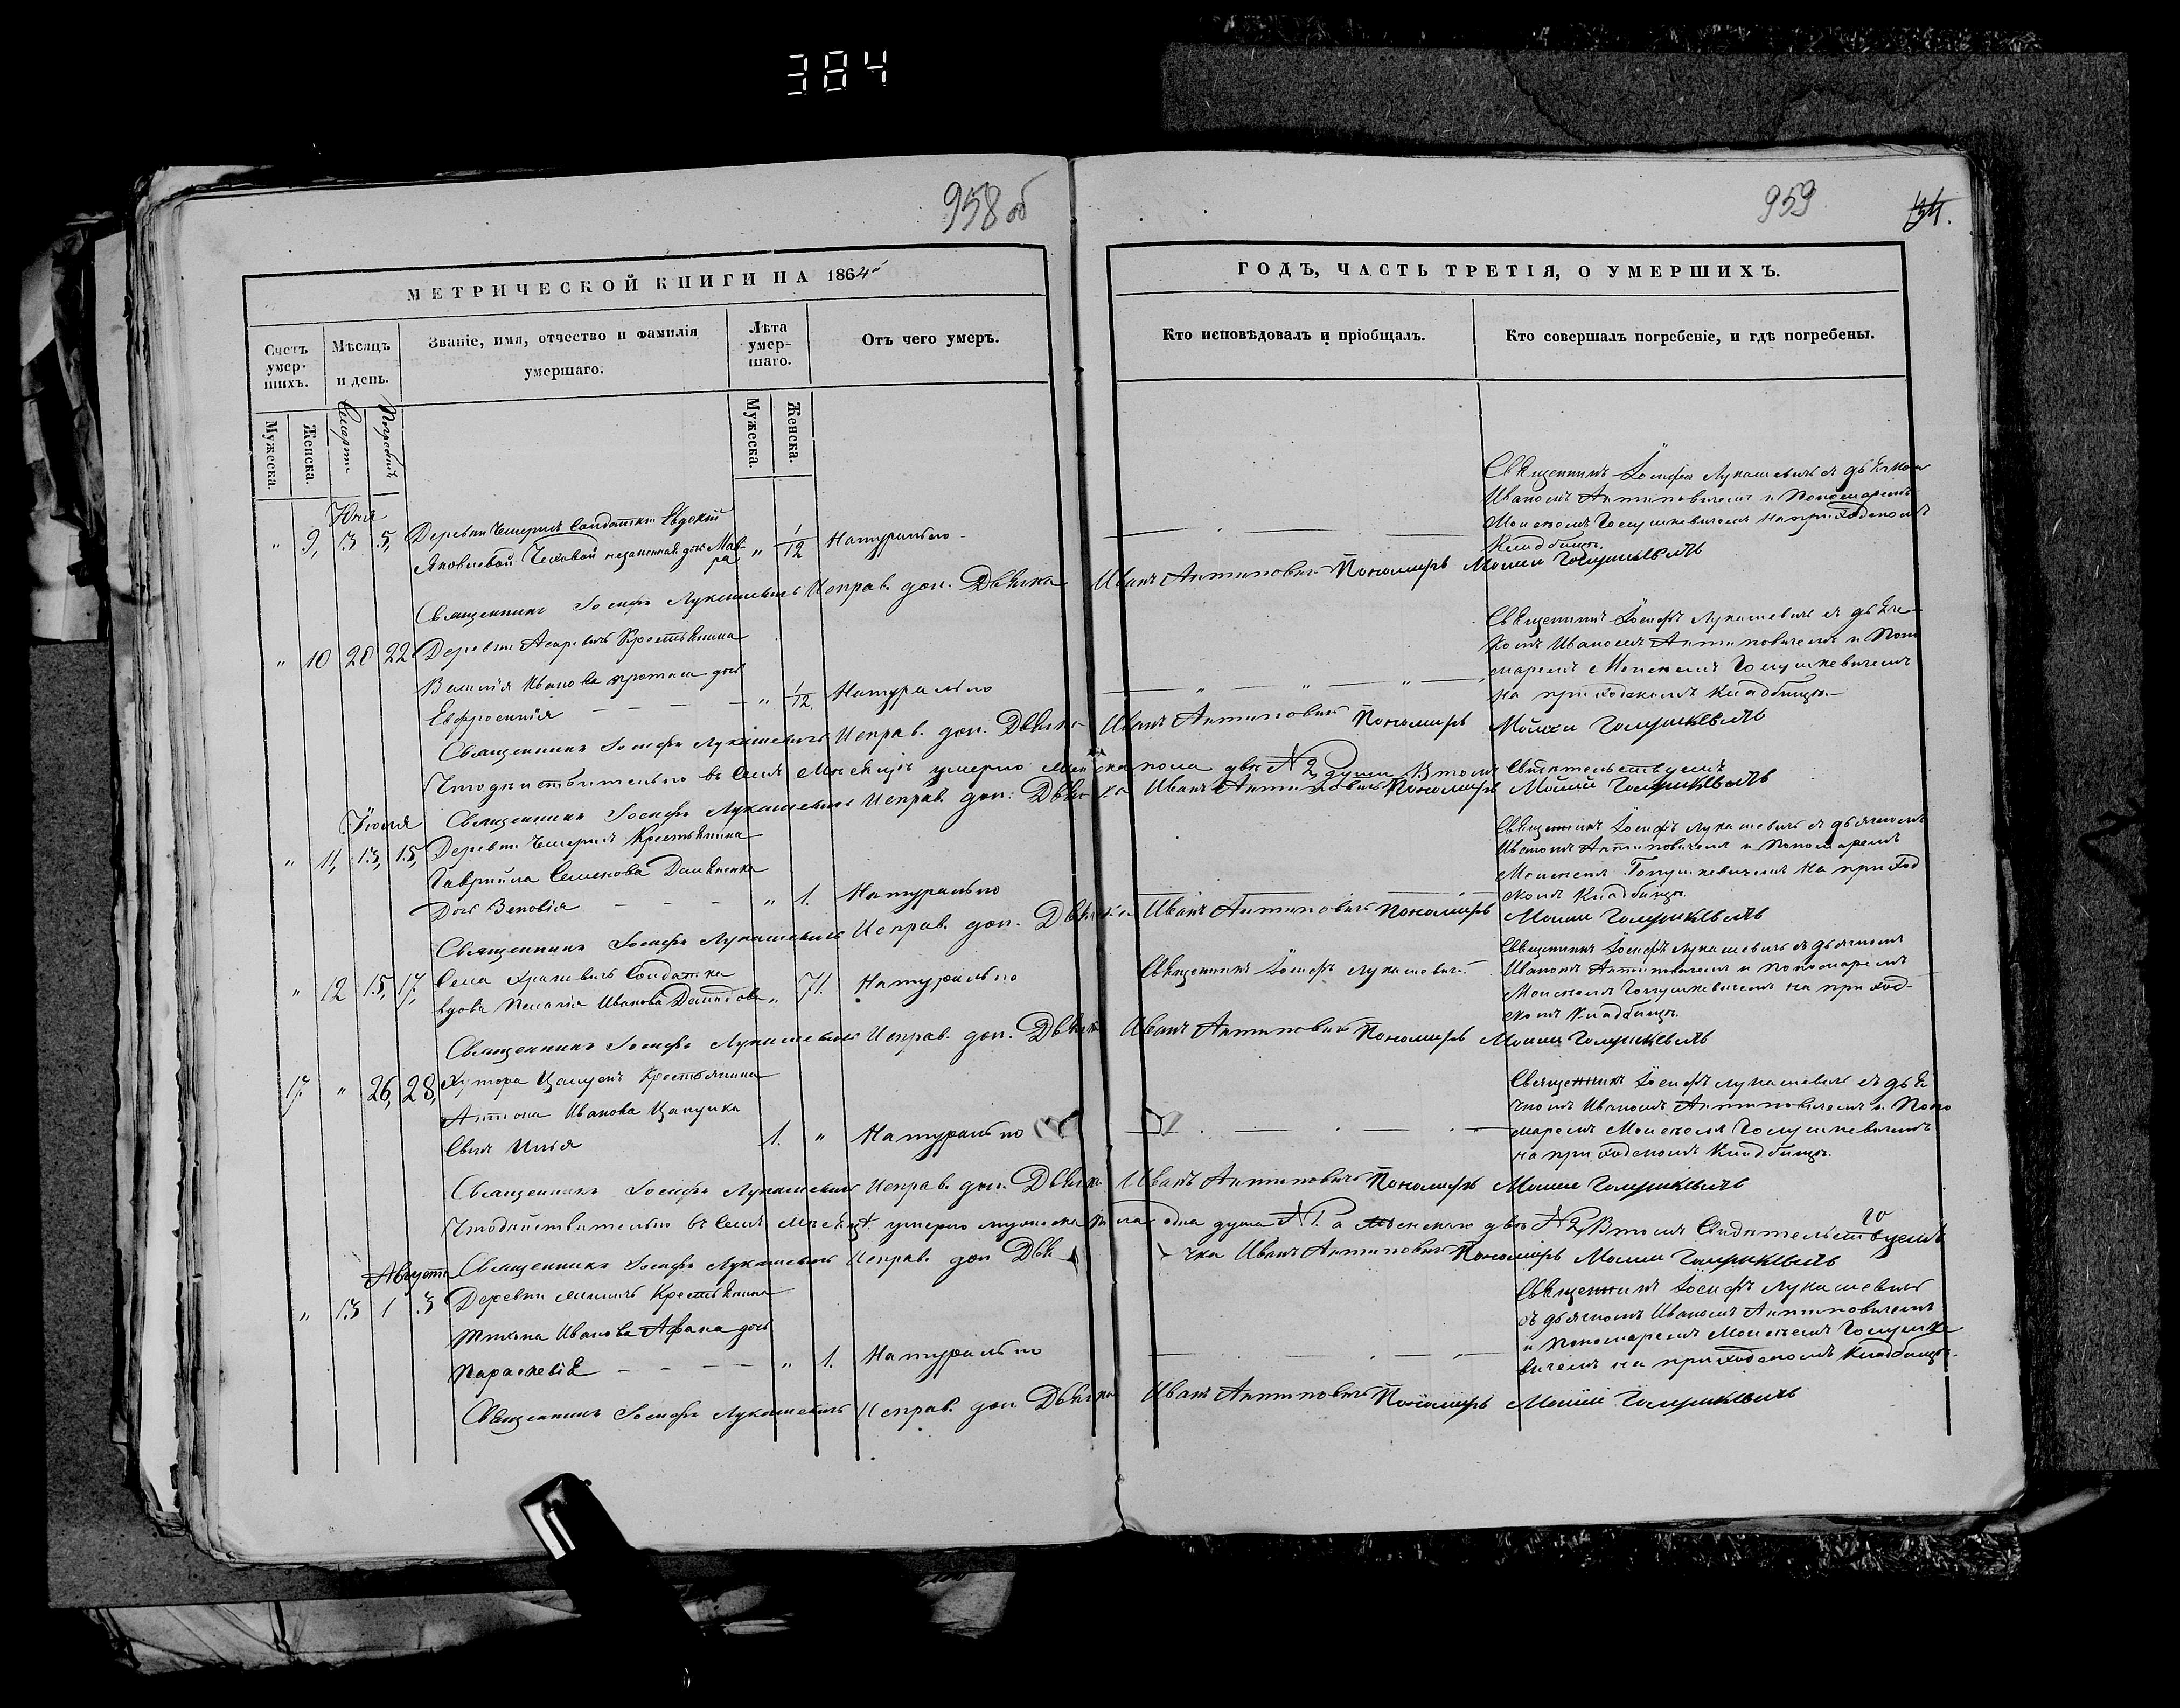 384
958 об
959
МЕТРИЧЕСКОЙ КНИГИ НА 1864й
ГОДЪ, ЧАСТЬ ТРЕТІЯ, О УМЕРШИХЪ.
Счетъ умер-
шихъ.
Мѣсяцъ
и день.
Званіе, имя, отчество и фамилія
умершаго.
Лѣта
умер-
шаго.
Отъ чего умеръ.
Кто исповѣдовалъ и пріобщалъ.
Кто совершалъ погребеніе, и гдѣ погребены.
Мужеска.
Женска.
Смерти
Погребен.
Мужеска.
Женска.
Юня
" 9, 3 5, Деревни Солдатки Евдокіи
Яковлевой незаконная дочь Мав-
ра " 1/12 Натурально
Священникъ Іосифъ Лукашевичъ съ дьячкомъ
Иваномъ Антиповичемъ и Пономаремъ
Моисеемъ Голушкевичемъ на приходскомъ
Кладбищѣ.
Священникъ Іосифъ Лукашевичъ Исправ. дол. Дьячка Иванъ Антиповичъ Пономарь Моисей Голушкевичъ
" 10 20 22 Деревни Крестьянина
Василія Иванова дочь
Евфросинія " 1/12. Натурально
Священникъ Іосифъ Лукашевичъ съ дьяч-
комъ Иваномъ Антиповичемъ и Поно
маремъ Моисеемъ Голушкевичемъ
на приходскомъ Кладбищѣ.
Священникъ Іосифъ Лукашевичъ Исправ. дол. Дьячка Иванъ Антиповичъ Пономарь Моисей Голушкевичъ
Что дѣйствительно въ семъ Мѣсяцѣ умерло женска пола двѣ № 2 души В томъ Свидѣтельствуемъ
Священникъ Іосифъ Лукашевичъ Исправ. дол. Дьячка Иванъ Антиповичъ Пономарь Моисей Голушкевичъ
Іюля
" 11, 13, 15, Деревни Крестьянина
Гавріила Семенова
Дочь Зеновія " 1. Натурально
Священникъ Іосифъ Лукашевичъ съ дьячкомъ
Иваномъ Антиповичемъ и Пономаремъ
Моисеемъ Голушкевичемъ на приход
скомъ Кладбищѣ.
Священникъ Іосифъ Лукашевичъ Исправ. дол. Дьячка Иванъ Антиповичъ Пономарь Моисей Голушкевичъ
" 12 15, 17, Села Солдатка
вдова Пелагія Иванова " 71. Натурально
Священникъ Іосифъ Лукашевичъ
Священникъ Іосифъ Лукашевичъ съ дьячкомъ
Иваномъ Антиповичемъ и Пономаремъ
Моисеемъ Голушкевичемъ на приход-
скомъ Кладбищѣ.
Священникъ Іосифъ Лукашевичъ Исправ. дол. Дьячка Иванъ Антиповичъ Пономарь Моисей Голушкевичъ
17. " 26, 28, Хутора Крестьянина
Антона Иванова
Сынъ Илья 1. " Натурально
Священникъ Іосифъ Лукашевичъ съ дья
чкомъ Иваномъ Антиповичемъ и Поно
маремъ Моисеемъ Голушкевичемъ
на приходскомъ Кладбищѣ.
Священникъ Іосифъ Лукашевичъ Исправ. дол. Дьячка Иванъ Антиповичъ Пономарь Моисей Голушкевичъ
Что дѣйствительно въ семъ Мѣсяцѣ умерло мужеска пола одна душа № 1. а женскаго двѣ № 2, В томъ Свидѣтельствуемъ
Августа
Священникъ Іосифъ Лукашевичъ Исправ. дол. Дья чка Иванъ Антиповичъ Пономарь Моисей Голушкевичъ
" 13 1 3 Деревни Крестьянина
Ивановa дочь
Параскевія " 1. Натурально
Священникъ Іосифъ Лукашевичъ
съ дьячкомъ Иваномъ Антиповичемъ
и Пономаремъ Моисеемъ Голушке
вичемъ на приходскомъ Кладбищѣ.
Священникъ Іосифъ Лукашевичъ Исправ. дол. Дьячка Иванъ Антиповичъ Пономарь Моисей Голушкевичъ